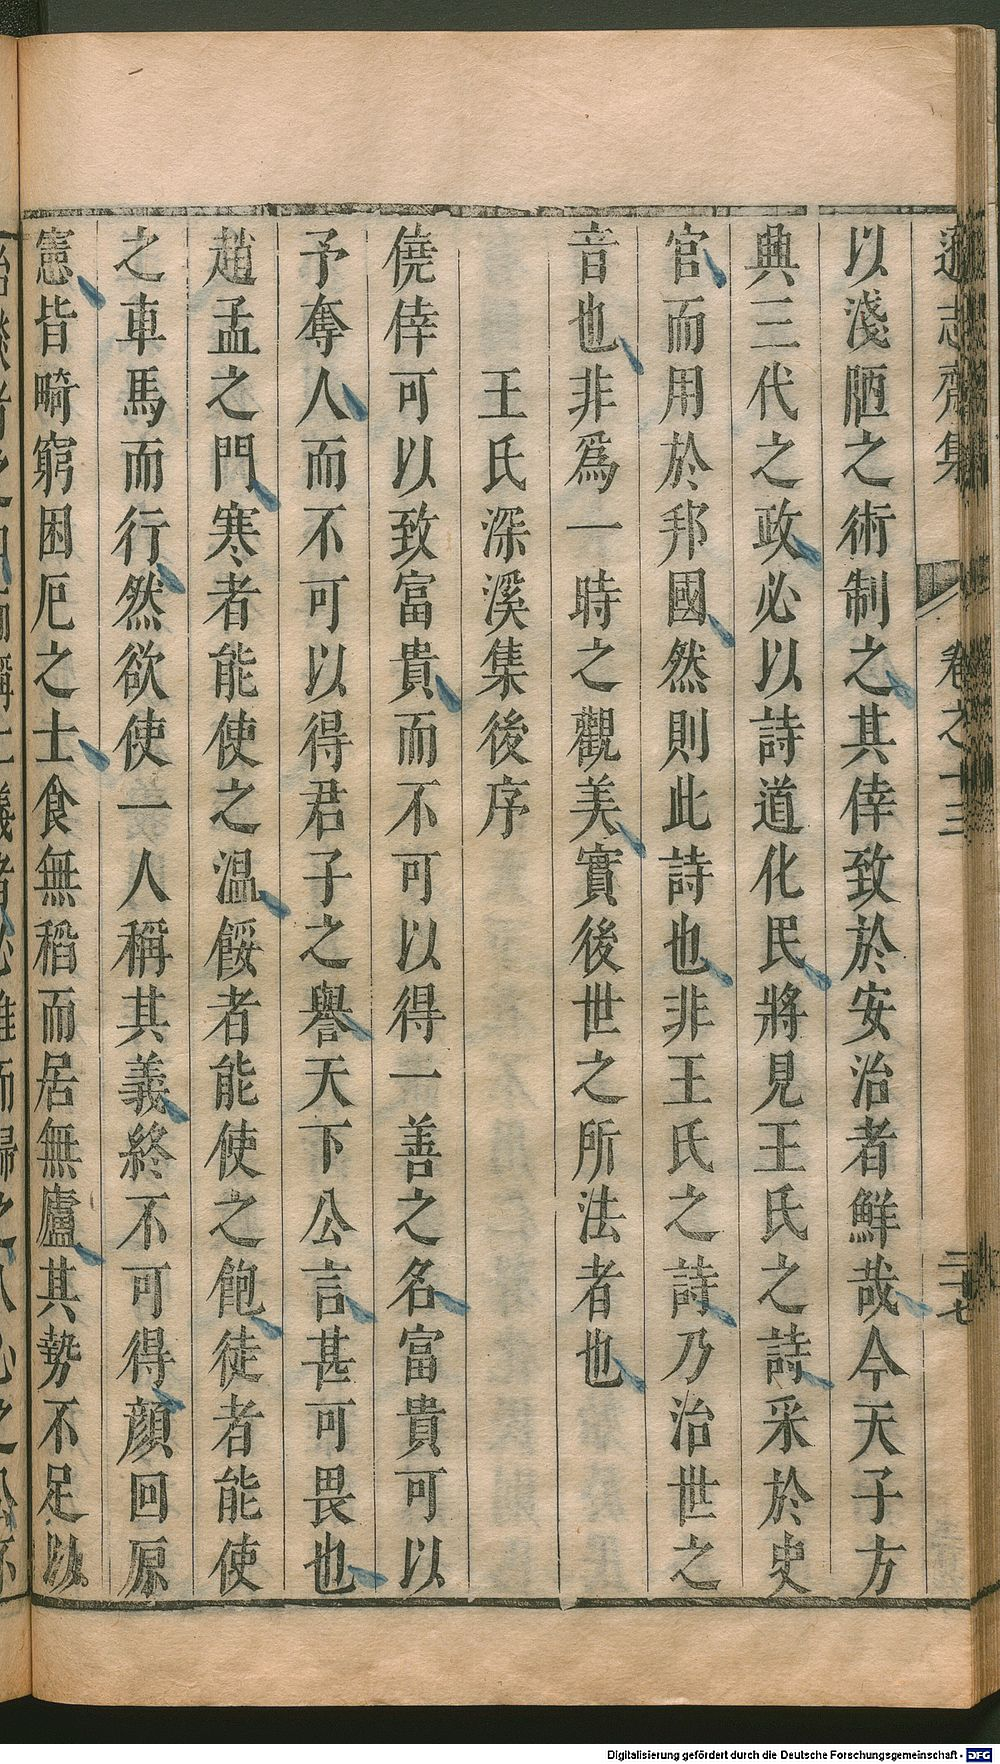 遜志齋集 卷之十三 二十七
以淺陋之術制之其倖致於安治者鮮哉今天子方
典三代之政必以詩道化民將見王氏之詩采於史
官而用於邦國然則此詩也非王氏之詩乃治世之
音也非爲一時之觀美實後世之所法者也
王氏深溪集後序
僥倖可以致富貴而不可以得一善之名富貴可以
予奪人而不可以得君子之譽天下公言甚可畏也
趙孟之門寒者能使之温餒者能使之飽徒者能使
之車馬而行然欲使一人稱其義終不可得顔回原
憲皆畸窮困厄之士食無稻而居無廬其勢不足以
Digitalisierung gefördert durch die Deutsche Forschungsgemeinschaft - DFG